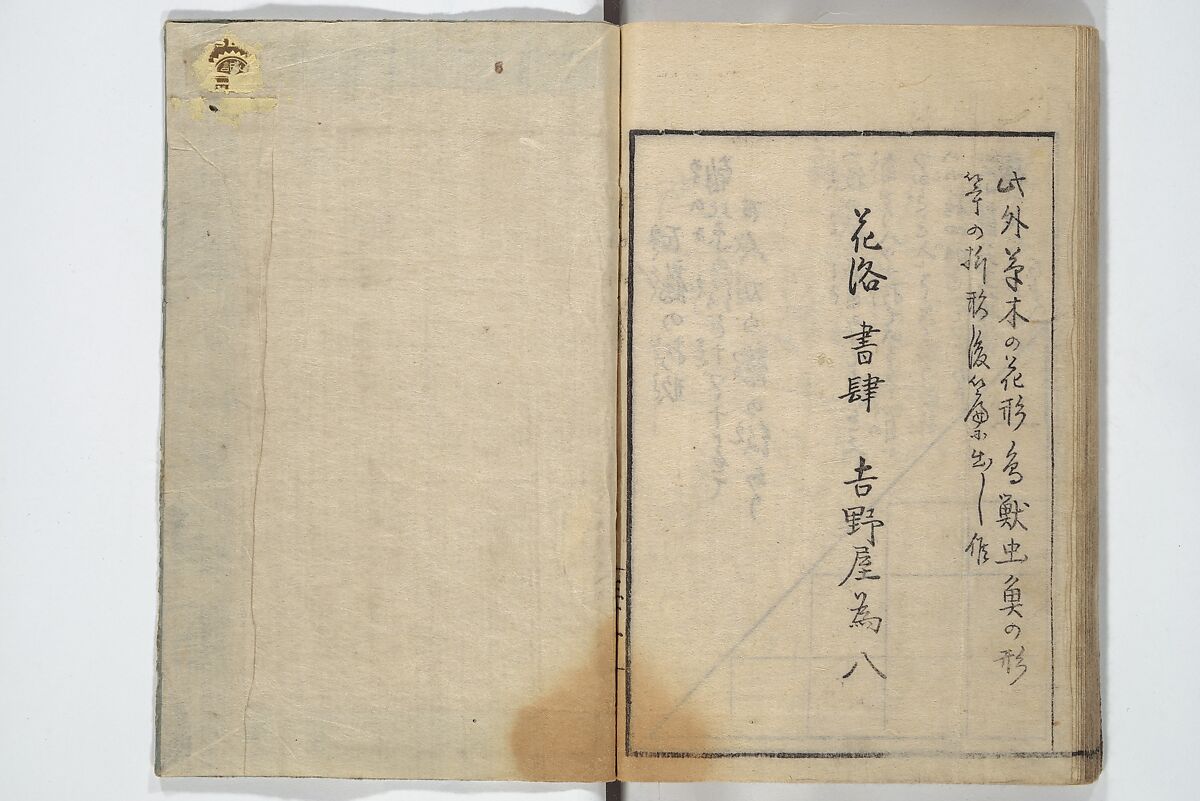 此外草木の花形鳥獣虫魚の形
等の折形後篇に出し作
花洛 書肆 吉野屋為八